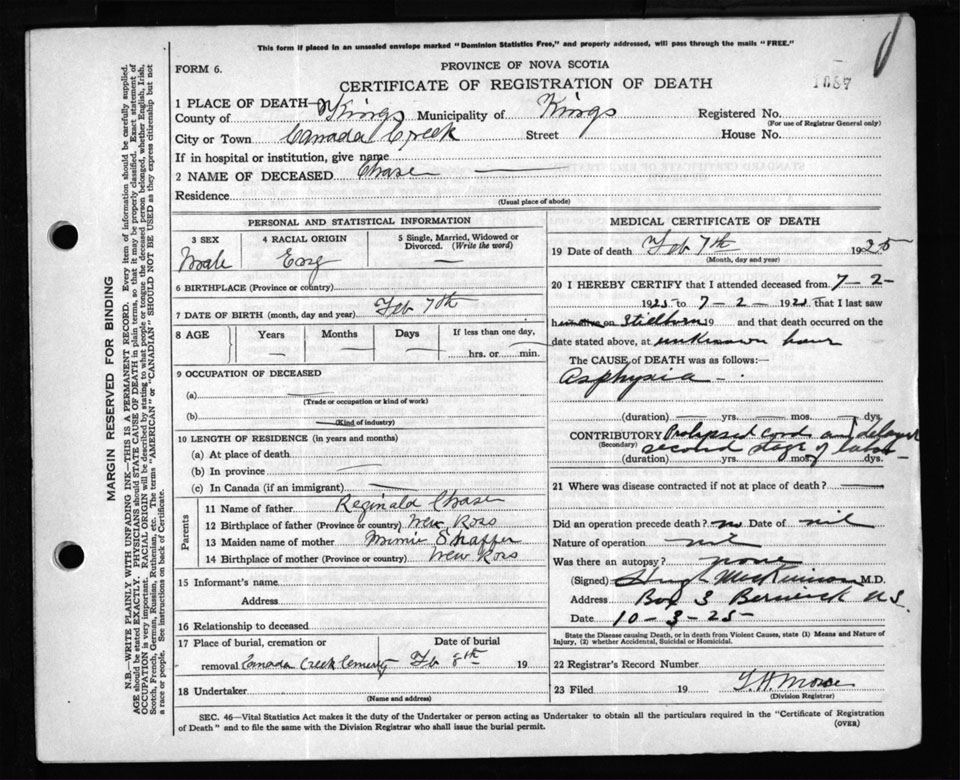 This form if placed in an unsealed envelope marked "Dominion Statistics Free," and properly addressed, will pass through the mails "FREE."
FORM 6.
PROVINCE OF NOVA SCOTIA
CERTIFICATE OF REGISTRATION OF DEATH
1 PLACE OF DEATH—
County of Kings Municipality of Kings Registered No.
(For use of Registrar General only)
City or Town Canada Creek Street House No.
If in hospital or institution, give name
2 NAME OF DECEASED Chase
Residence
(Usual place of abode)
PERSONAL AND STATISTICAL INFORMATION
3 SEX 4 RACIAL ORIGIN 5 Single, Married, Widowed or Divorced. (Write the word)
Male Eng —
6 BIRTHPLACE (Province or country)
7 DATE OF BIRTH (month, day and year) Feb 7th
8 AGE Years Months Days If less than one day,
— — — hrs. or min.
9 OCCUPATION OF DECEASED
(a) —
(Trade or occupation or kind of work)
(b)
(Kind of industry)
10 LENGTH OF RESIDENCE (in years and months)
(a) At place of death
(b) In province —
(c) In Canada (if an immigrant) —
Parents
11 Name of father Reginald Chase
12 Birthplace of father (Province or country) New Ross
13 Maiden name of mother Minnie Shaffer
14 Birthplace of mother (Province or country) New Ross
15 Informant's name
Address
16 Relationship to deceased
17 Place of burial, cremation or Date of burial
removal Canada Creek Cemetery Feb 8th 19
18 Undertaker
(Name and address)
MEDICAL CERTIFICATE OF DEATH
19 Date of death Feb 7th 1925
(Month, day and year)
20 I HEREBY CERTIFY that I attended deceased from 7 – 2 –
1925 to 7 – 2 – 1925 that I last saw
h on Stillborn 19 and that death occurred on the
date stated above, at unknown hour
The CAUSE of DEATH was as follows:—
Asphyxia —
(duration) — yrs. — mos. — dys.
CONTRIBUTORY Prolapsed cord and delayed
(Secondary) second stage of labor
(duration) yrs. mos. dys.
21 Where was disease contracted if not at place of death? —
Did an operation precede death? no Date of nil
Nature of operation nil
Was there an autopsy? none
(Signed) Hugh McKinnon M.D.
Address Box 3 Berwick N.S.
Date 10 – 3 – 25
State the Disease causing Death, or in death from Violent Causes, state (1) Means and Nature of
Injury, (2) whether Accidental, Suicidal or Homicidal.
22 Registrar's Record Number
23 Filed 19
(Division Registrar)
SEC. 46—Vital Statistics Act makes it the duty of the Undertaker or person acting as Undertaker to obtain all the particulars required in the "Certificate of Registration
of Death" and to file the same with the Division Registrar who shall issue the burial permit.
(OVER)
MARGIN RESERVED FOR BINDING
N.B.—WRITE PLAINLY WITH UNFADING INK—THIS IS A PERMANENT RECORD. Every item of information should be carefully supplied.
AGE should be stated EXACTLY. PHYSICIANS should STATE CAUSE OF DEATH in plain terms, so that it may be properly classified. Exact statement of
OCCUPATION is very important. RACIAL ORIGIN will be described by stating to what people or tongue the deceased person belonged, whether English, Irish,
Scotch, French, German, Russian, Ruthenian, etc. The terms "AMERICAN" or "CANADIAN" SHOULD NOT BE USED as they express citizenship but not
a race or people. See instructions on back of Certificate.